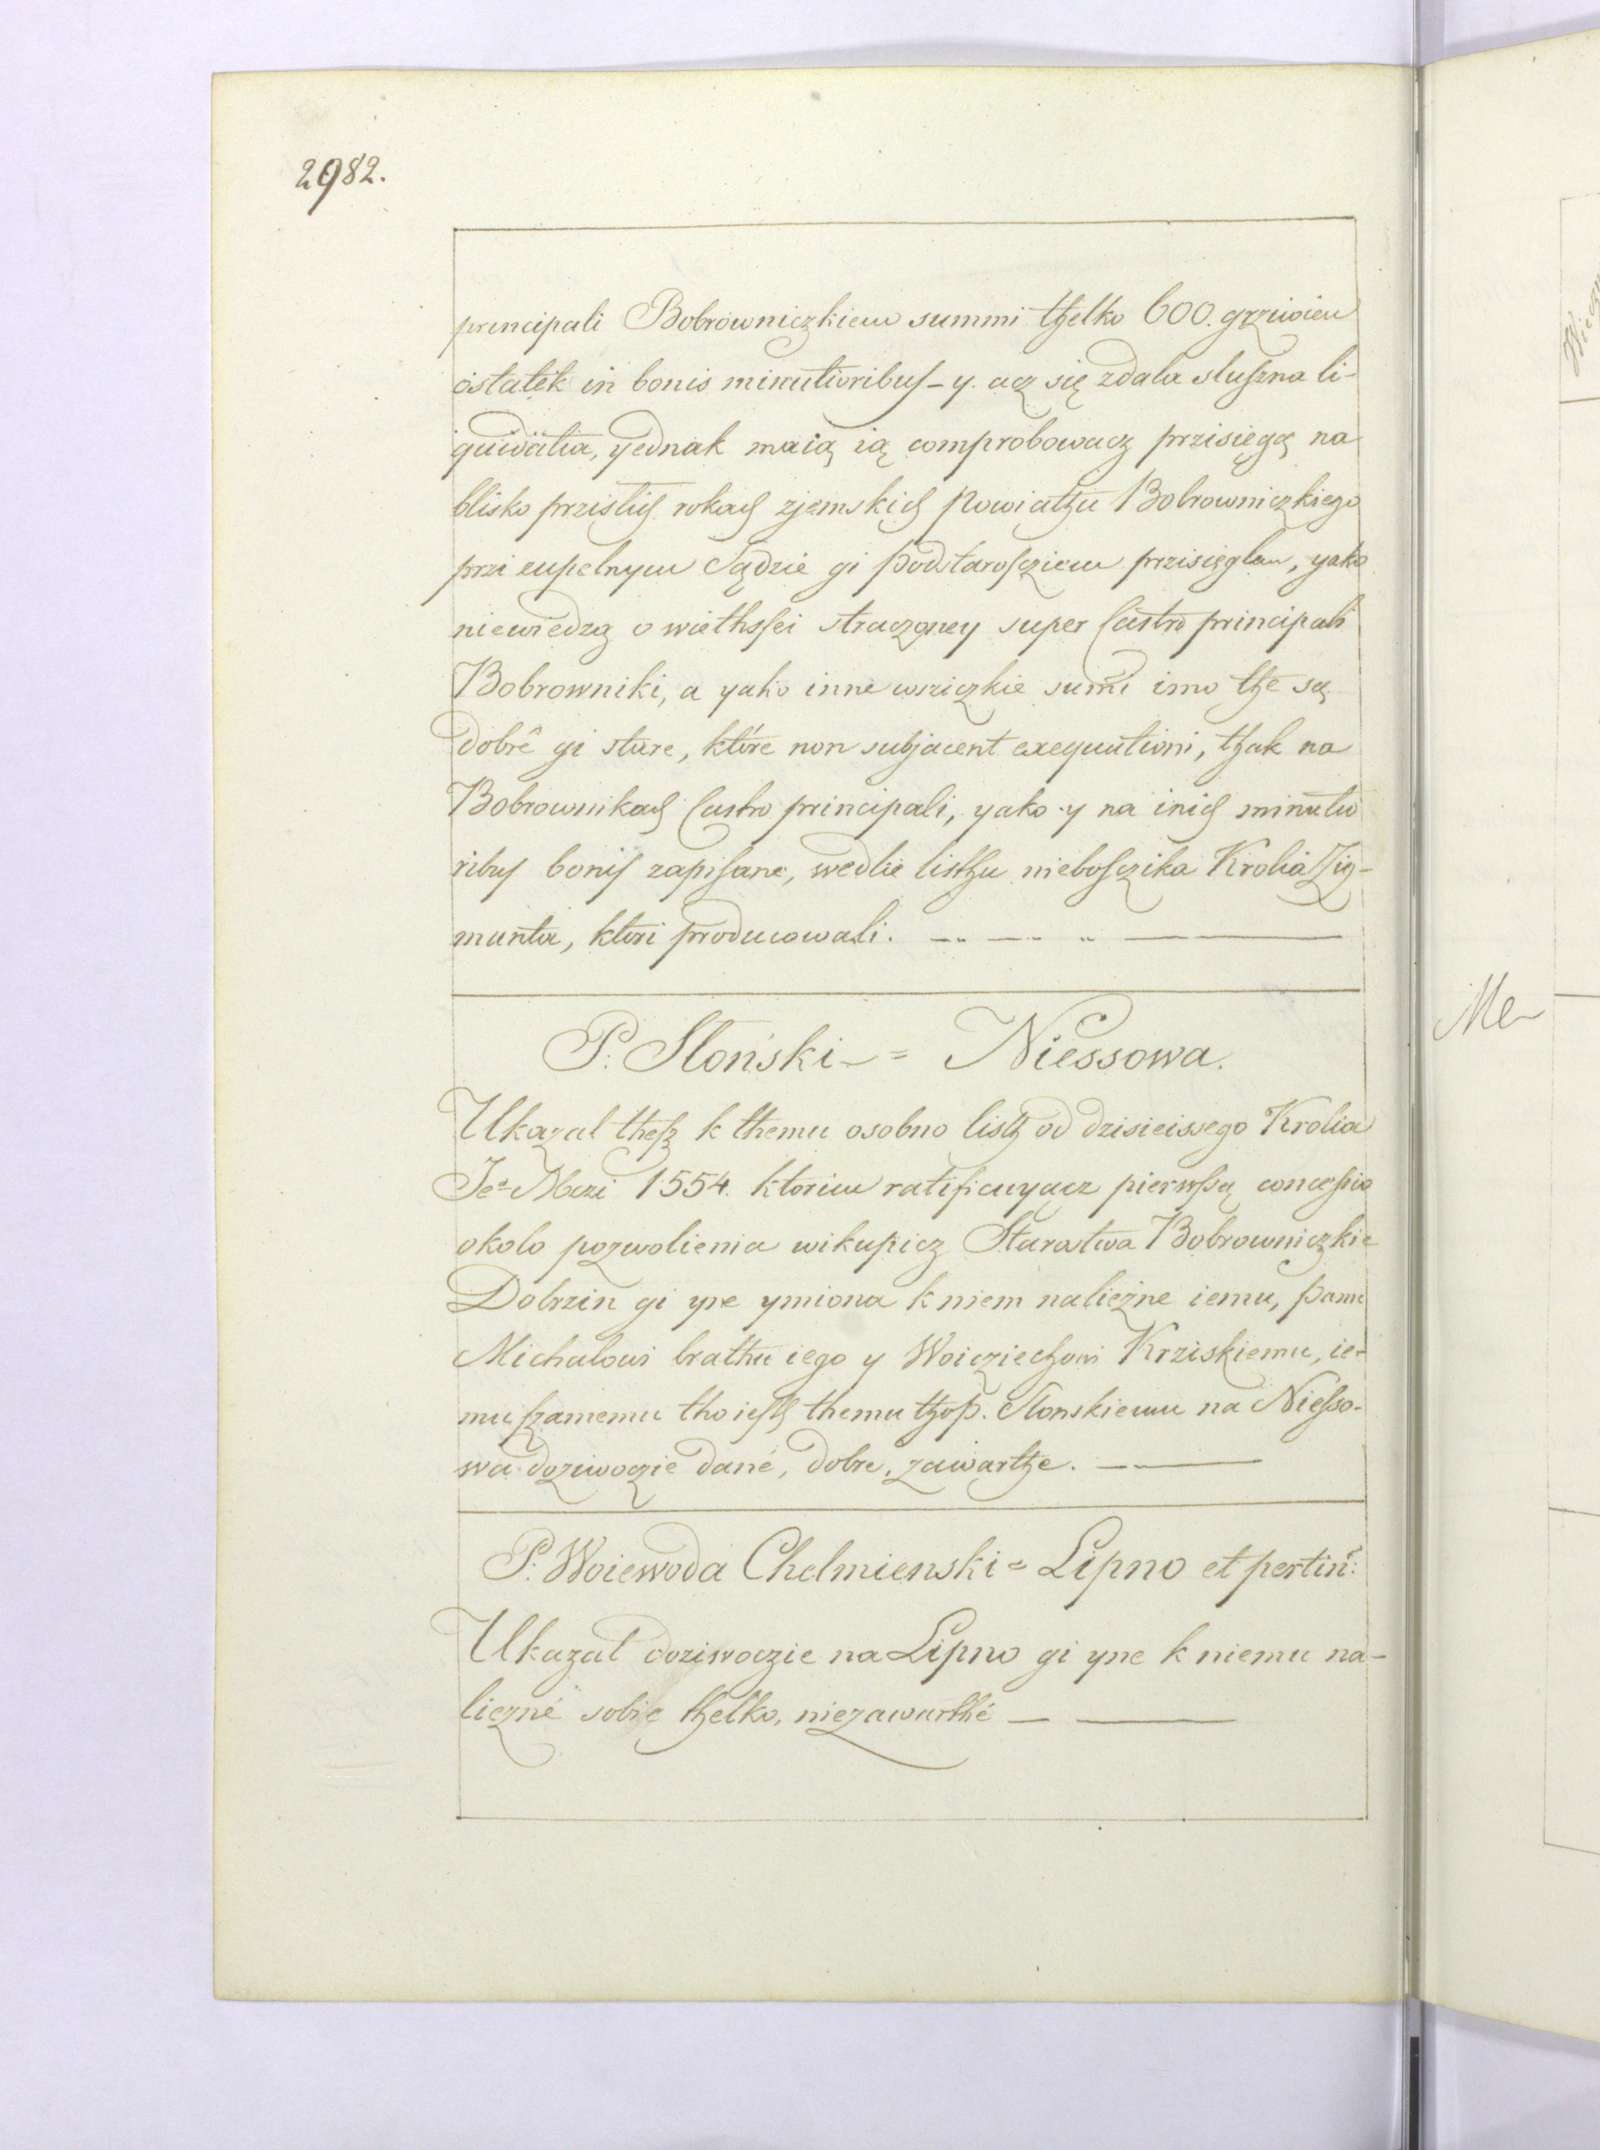 2982.
principali Bobrowniczkiem summi tzelko 600. grziwien
ostatek in bonis minutioribus - y. acz się zdala sluszna li-
quidatia, yednak maią ią comprobowacz przisięgą na
blisko przislich rokach zjemskich Powiatzu Bobrowniczkiego
przi zupelnym Sądzie gi podstarosciem przisięglem, yako
niewiedzą o wiethssei straczoney super Castro principali
Bobrowniki, a yako inne wsziczkie summi imo tze są
dobre gi stare, które non subjacent exequutioni, tzak na
Bobrownikach Castro principali, yako y na inich minutio
ribus bonis zapisane, wedlie listzu nieboszczika Krolia Zig-
munta, ktori producowali.
P. Słoński = Niessowa.
Ukazal thesz k themu osobno listz od dzisieissego Krolia
Je° Mczi 1554. ktorim ratificuyącz pierwszą concessio
okolo pozwolienia wikupicz Starostwa Bobrowniczkie
Dobrzin gi yne ymiona k niem nalieżne iemu, panu
Michalowi brathu iego y Woicziechowi Krziskiemu, ie-
mu szamemu tho iestz themu tzo p. Slonskiemu na Niesso-
wa doziwoczie dané, dobre, zawartze.
P. Woiewoda Chelmienski = Lipno et pertin:
Ukazal doziwoczie na Lipno gi yne k niemu na-
liezné sobie tzelko, niezawarthé
Me